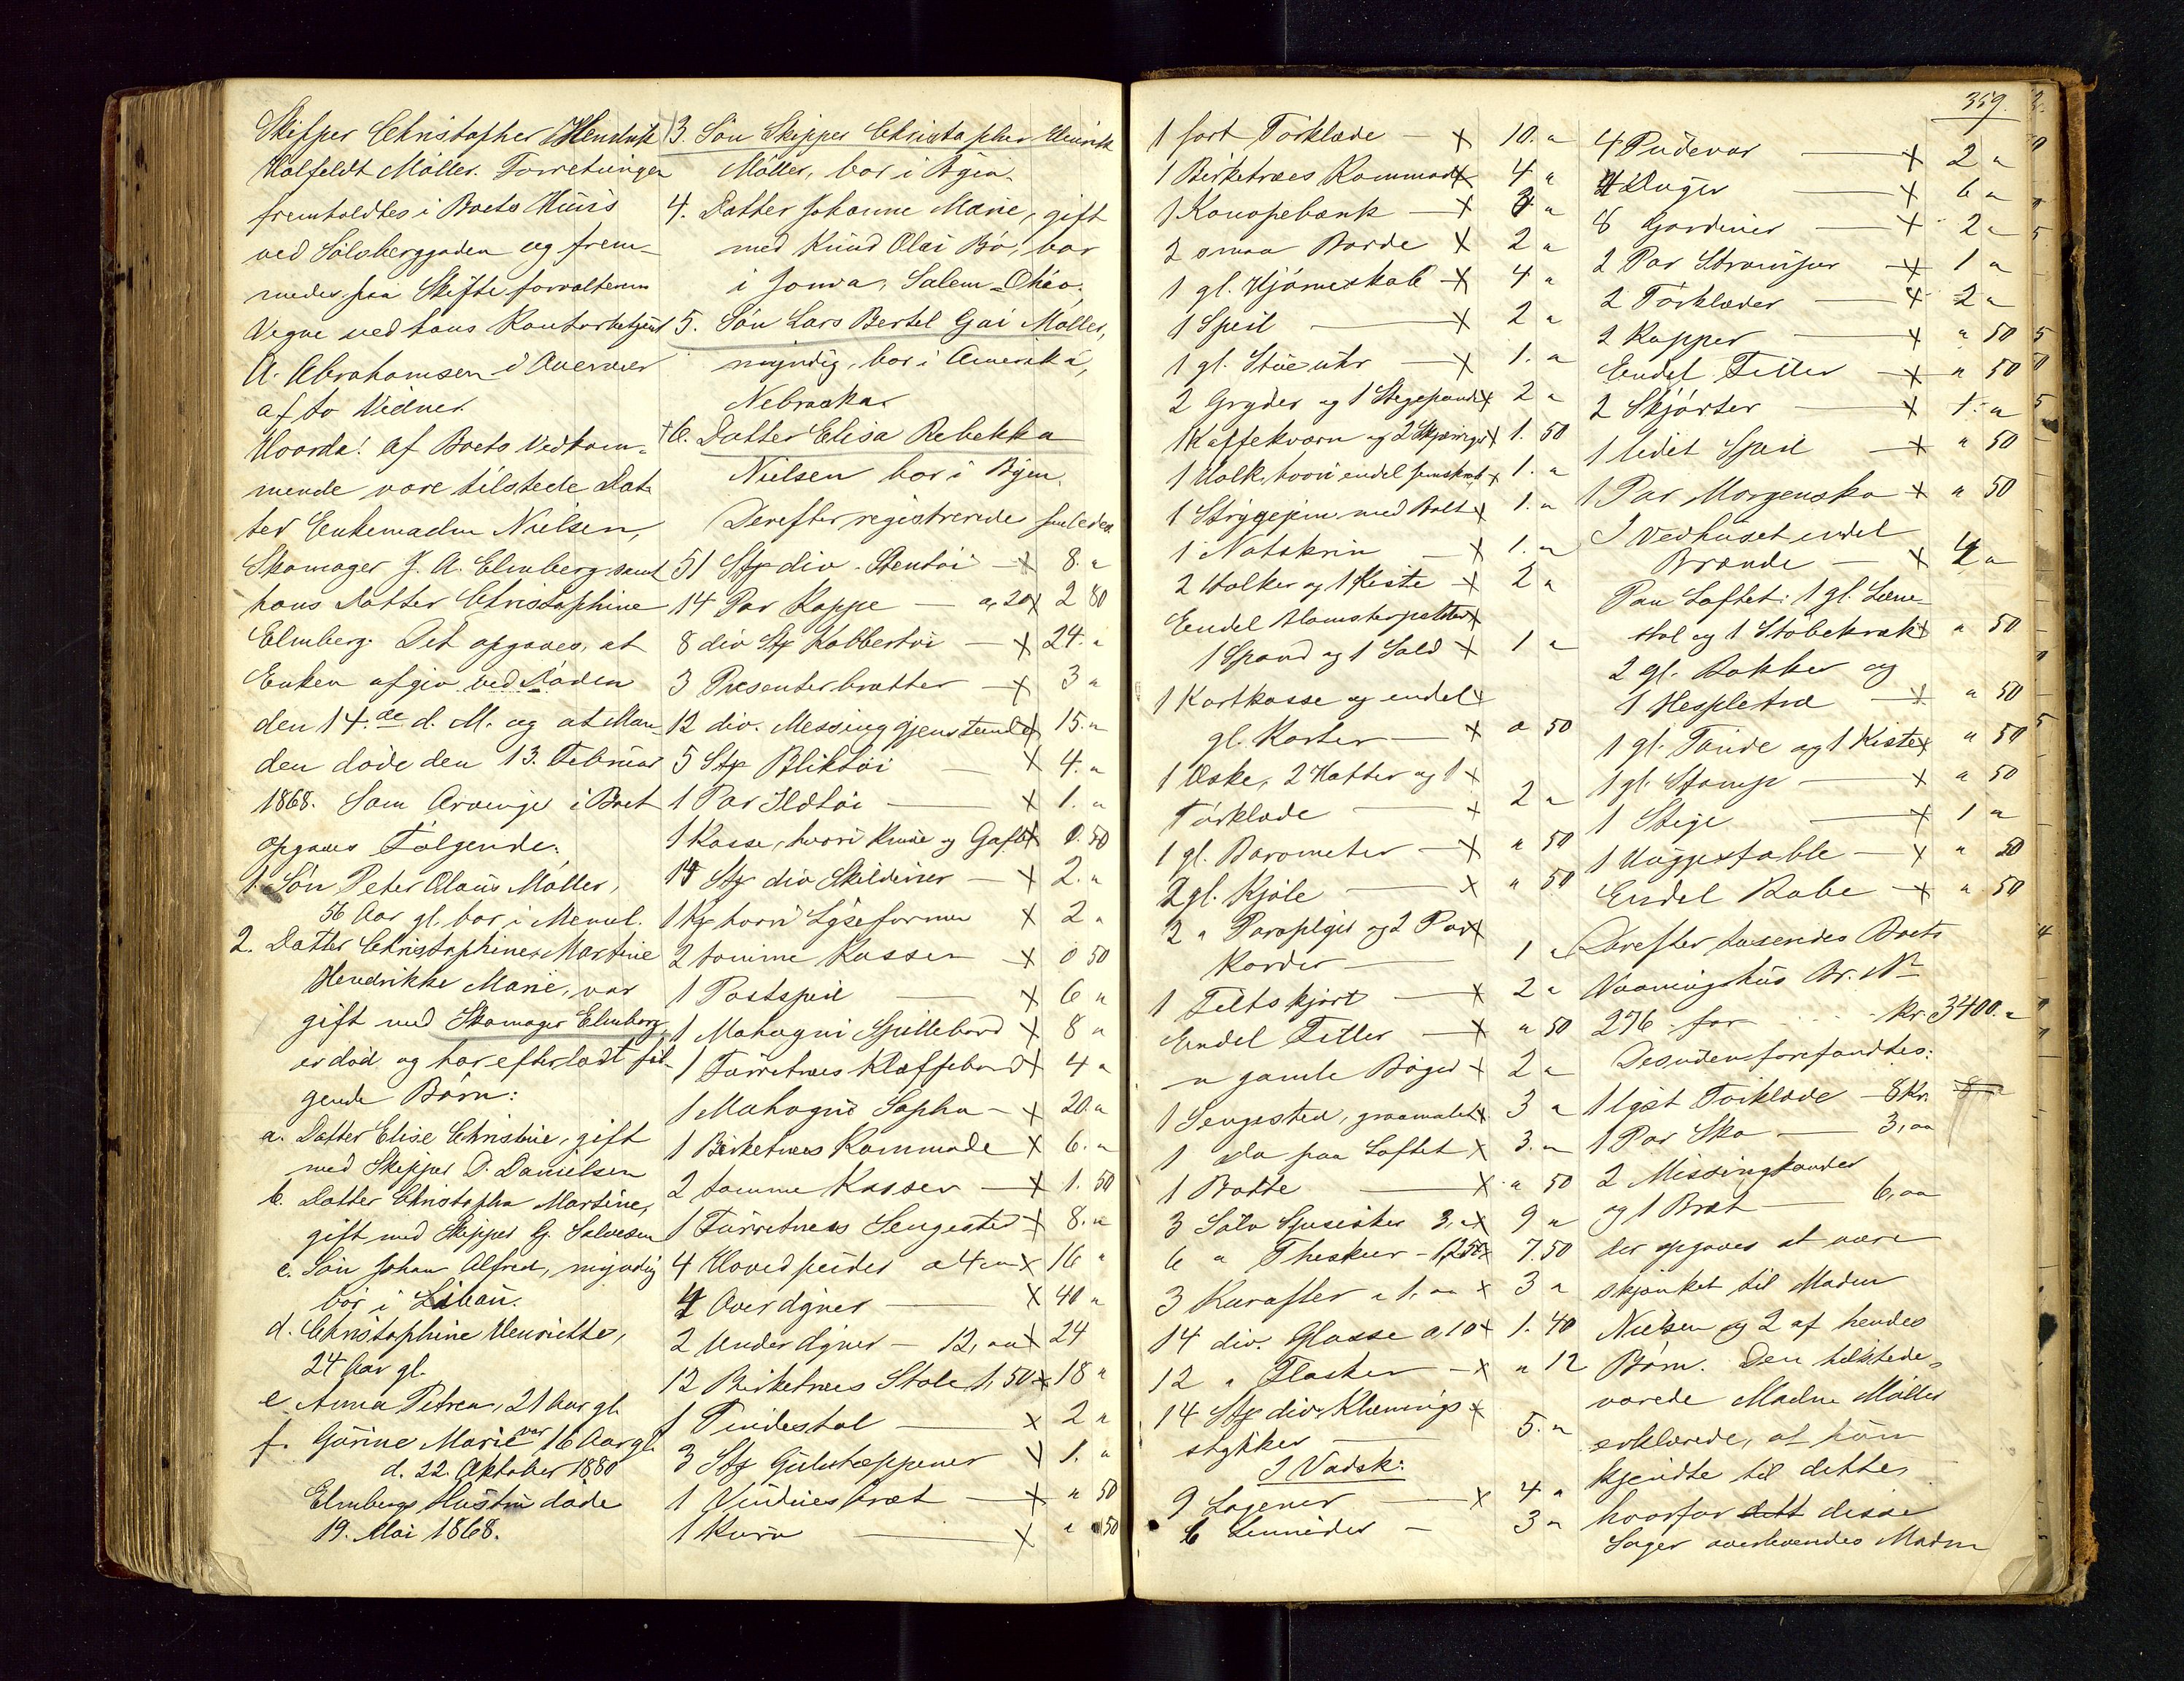 Skipper Christopher Hendrik
Holfeldt Möller. Forretningen
fremholdtes i Boets Huus
ved Sölsberggaden og frem-
medes paa Skifteforvalterens
Vegne ved hans Kontorbetjent
A. Abrahamsen i Overvær
af to Vidner.
Hvorda! Af Boets Vedkom-
mende vare tilstede Dat-
ter Enkemadm Nielsen,
Skomager J. A. Elmberg samt
hans Datter Christophine
Elmberg. Det opgaves, at
Enken afgik ved Döden
den 14.de d. M. og at Man-
den döde den 13. Februar
1868. Som Arvinge i Boet
opgaves Fölgende:
1. Sön Peter Olaus Möller,
56 Aar gl, bor i Memel.
2. Datter Christophine Martine
Hendrikke Marie, var
gift med Skomager Elmberg,
er död og har efterladt föl-
gende Börn:
a. Datter Elise Christine, gift
med Skipper D. Danielsen
b. Datter Christopha Martine,
gift med Skipper G. Salvesen
c. Sön Johan Alfred, myndig
bor i Libau.
d. Christophine Henriette,
24 Aar gl.
e Anna Petrea, 21 Aar gl.
f. Gürine Marie var 16 Aar gl.
d. 22. Oktober 1880
Elmbergs Hustru döde
19. Mai 1868.
3. Sön Skipper Christopher Henrik
Möller, bor i Byen.
4. Datter Johanne Marie, gift
med Knud Olai Bö, bor
i Jowa, Salem-Ohio.
5. Sön Lars Bertel Gai Möller,
myndig, bor i Amerika,
Nebraska.
+6. Datter Elisa Rebekka
Nielsen bor i Byen.
Derefter registrerede saaledes
51 Stk div. Stentöi — x 8. "
14 Par Koppe — a, 20 x 2 80
8 div Stk Kobbertöi — x 24. "
3 Presenterbrætter — x 3 "
12 div. Messinggjenstande x 15. "
5 Stk Bliktöi — x 4. "
1 Par Ildtöi — x 1. "
1 Kasse, hvori Knive og Gafler x 0. 50
15 Stk div Skilderier — x 2. "
1 Kg hvori Lyseformer x 2 "
2 tomme Kasser — x 0 50
1 Postspeil — x 6 "
1 Mahogni Spillebord x 8 "
1 Fürretræes Klaffebord x 4 "
1 Mahogni Sopha — x 20. "
1 Birketræes Kommode x 6. "
2 tomme Kasser — x 1. 50
1 Fürretræes Sengested x 8. "
4 Hovedpuder a 4 " x 16 "
4 Overdyner — x 40 "
2 Underdyner — 12, " x 24
12 Birketræes Stole 1, 50 x 18 "
1 Pindestol — x 2 "
3 Stk Gulvtæppener x 1. "
1 Vindues bræt — x " 50
1 Kurv — x " 50
359.
1 sort Törklæde — x 10. "
1 Birketræes Kommode x 4 "
1 Kanapebænk — x 3 "
2 smaa Borde x 2 "
1 gl. Hjörneskab — x 4 "
1 Speil — x 2 "
1 gl. Stueuhr — x 1. "
2 Gryder og 1 Stegepande x 2 "
1 Kaffekværn og 2 x 1. 50
1 Holk, hvori endel x 1. "
1 Strygejern med Bolt x 1. "
1 Natskrin — x 1. "
2 Holker og 1 Kiste x 2 "
Endel Blomsterpotter x
1 Spand og 1 Sold x 1 "
1 Kortkasse og endel x
gl. Karter — x " 50
1 Æske, 2 Hatter og 1 x
Törklæde — x 2 "
1 gl. Barometer — x " 50
2 gl. Kjole — x " 50
2 " Paraplyer og 2 Par x
Karder — 1 "
1 Filtskjört — x 2 "
Endel Filler — x " 50
" gamle Böger x 2 "
1 Sengested, graamalet x 3 "
1 do paa Loftet x 3. "
1 Bötte — x " 50
3 Sölv Spiseskeer 3, " x 9 "
6 " Theskeer - 1,25 x 7. 50
3 Karafler a 1, " x 3 "
14 div. Glasse a, 10 x 1. 40
12 " Flasker — x " 12
14 Stk div. Klædnings x
stykker — 5. "
I Vadsk:
9 Lagener — x 4 "
6 — 3 "
4 Pudevar — x 2 "
4 Duger — x 6 "
8 Gardiner — x 2 "
2 Par Strömper — x 1 "
2 Törklæder — x 2 "
2 Kapper — x " 50
Endel Filler — x " 50
2 Skjörter — x 1. "
1 lidet Speil — x " 50
1 Par Morgensko x " 50
I Vedhuset endel
Brænde — x 4 "
Paa Loftet: 1 gl. Læne-
stol og 1 Stöbekrak x " 50
2 gl. Rokker og
1 Hespletræ — x " 50
1 gl. Tönde og 1 Kiste x " 50
1 gl. Stamp — x " 50
1 Stige — x 1 "
1 Huggestabbe — x " 50
Endel Tobe — x " 50
Derefter taxeredes Boets
Vaaningshus Br. No
276 for - - - - Kr. 3400. "
Desuden forefandtes:
1 lyst Törklæde — 8 Kr. 8. "
1 Par Sko — 3, "
2 Missingkander
og 1 Bræt — 6, "
der opgaves at være
skjænket til Madm
Nielsen og 2 af hendes
Börn. Den tilstede-
værede Madm Möller
erklærede, at hun
kjendte til dette,
hvorfor dett disse
Sager overleveredes Madm